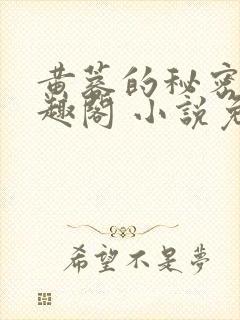 黄蓉的秘密
趣閣 小說免
希望不是夢